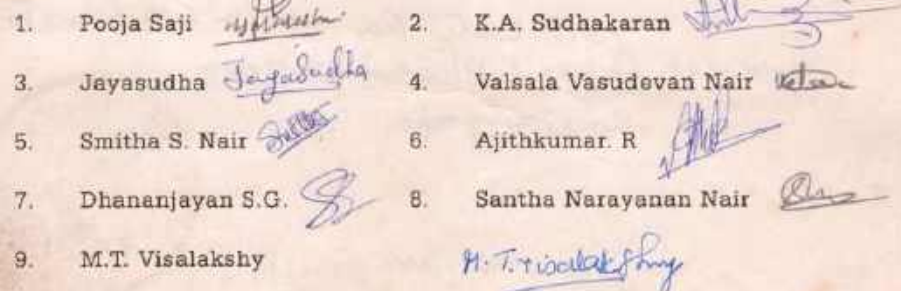 1. Pooja Saji 2. K.A. Sudhakaran
3. Jayasudha JayaSudha 4. Valsala Vasudevan Nair
5. Smitha S. Nair 6. Ajithkumar. R
7. Dhananjayan S.G. 8. Santha Narayanan Nair
9. M.T. Visalakshy M.T. Visalakshmy